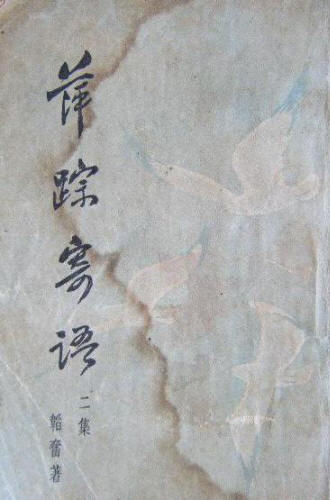 萍踪寄语
二集
韬奋著